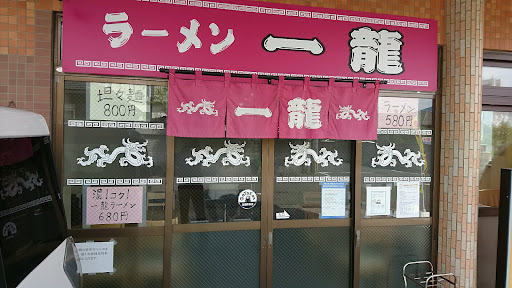 ラーメン 一龍
一龍
坦々麺
800円
ラーメン
580円
濃!コク!
一龍ラーメン
680円